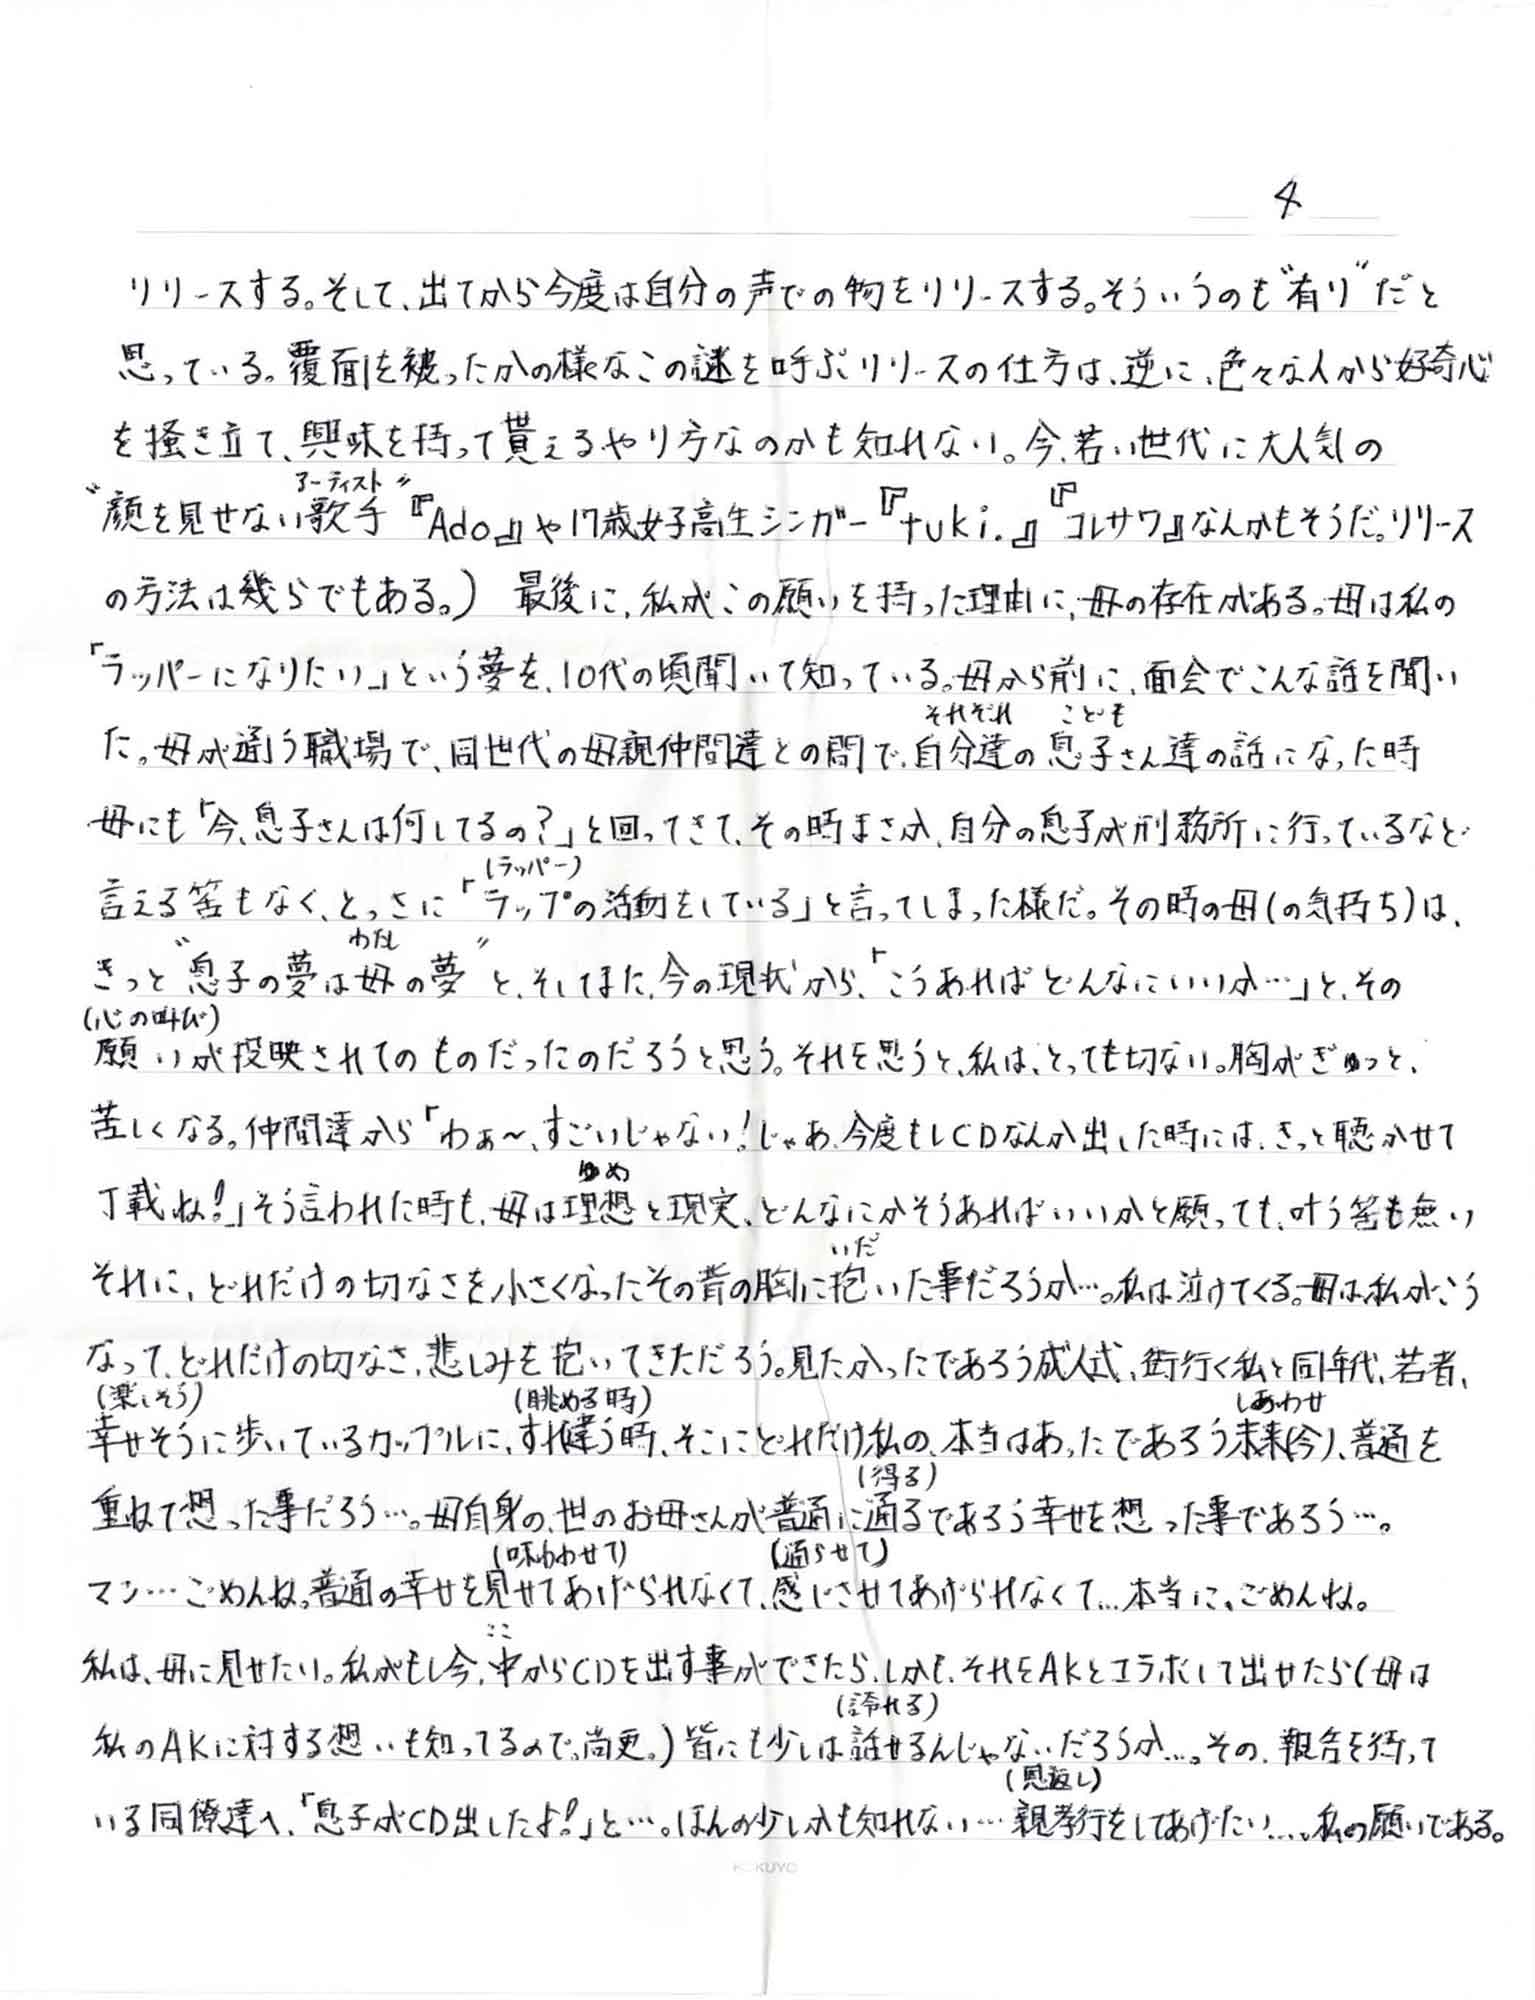 4
リリースする。そして、出てから今度は自分の声での物をリリースする。そういうのも"有り"だと
思っている。覆面を被ったかの様なこの謎を呼ぶリリースの仕方は、逆に、色々な人から好奇心
を掻き立て、興味を持って貰えるやり方なのかも知れない。今、若い世代に大人気の
アーティスト
"顔を見せない歌手"『Ado』や17歳女子高生シンガー『tuki.』『コレサワ』なんかもそうだ。リリース
の方法は幾らでもある。) 最後に、私がこの願いを持った理由に、母の存在がある。母は私の
「ラッパーになりたい」という夢を、10代の頃聞いて知っている。母から前に、面会でこんな話を聞い
それぞれ こども
た。母が通う職場で、同世代の母親仲間達との間で、自分達の息子さん達の話になった時
母にも「今、息子さんは何してるの?」と回ってきて、その時まさか、自分の息子が刑務所に行っているなど
(ラッパー)
言える筈もなく、とっさに「ラップの活動をしている」と言ってしまった様だ。その時の母(の気持ち)は、
わたし
きっと"息子の夢は母の夢"と、そしてまた、今の現状から、「こうあればどんなにいいか…」と、その
(心の叫び)
願いが投映されてのものだったのだろうと思う。それを思うと、私は、とっても切ない。胸がぎゅっと、
苦しくなる。仲間達から「わぁ〜、すごいじゃない!じゃあ、今度もしCDなんか出した時には、きっと聴かせて
ゆめ
丁載ね!」そう言われた時も、母は理想と現実、どんなにかそうあればいいかと願っても、叶う筈も無い
いだ
それに、どれだけの切なさを小さくなったその背の胸に抱いた事だろうか…。私は泣けてくる。母は、私がこう
なって、どれだけの切なさ、悲しみを抱いてきただろう。見たかったであろう成人式、街行く私と同年代、若者、
(楽しそう) (眺める時) しあわせ
幸せそうに歩いているカップルに、すれ違う時、そこにどれだけ私の、本当はあったであろう未来(今)、普通を
(得る)
重ねて想った事だろう…。母自身の、世のお母さんが普通に通るであろう幸せを想った事であろう…。
(味わわせて) (通らせて)
マン…ごめんね。普通の幸せを見せてあげられなくて、感じさせてあげられなくて…本当に、ごめんね。
ここ
私は、母に見せたい。私がもし今、中からCDを出す事ができたら、しかも、それをAKとコラボして出せたら(母は
(誇れる)
私のAKに対する想いも知ってるので。尚更。)皆にも少しは話せるんじゃないだろうか…。その、報告を待って
(恩返し)
いる同僚達へ、「息子がCD出したよ!」と…。ほんの少しかも知れない…親孝行をしてあげたい…。私の願いである。
KOKUYO